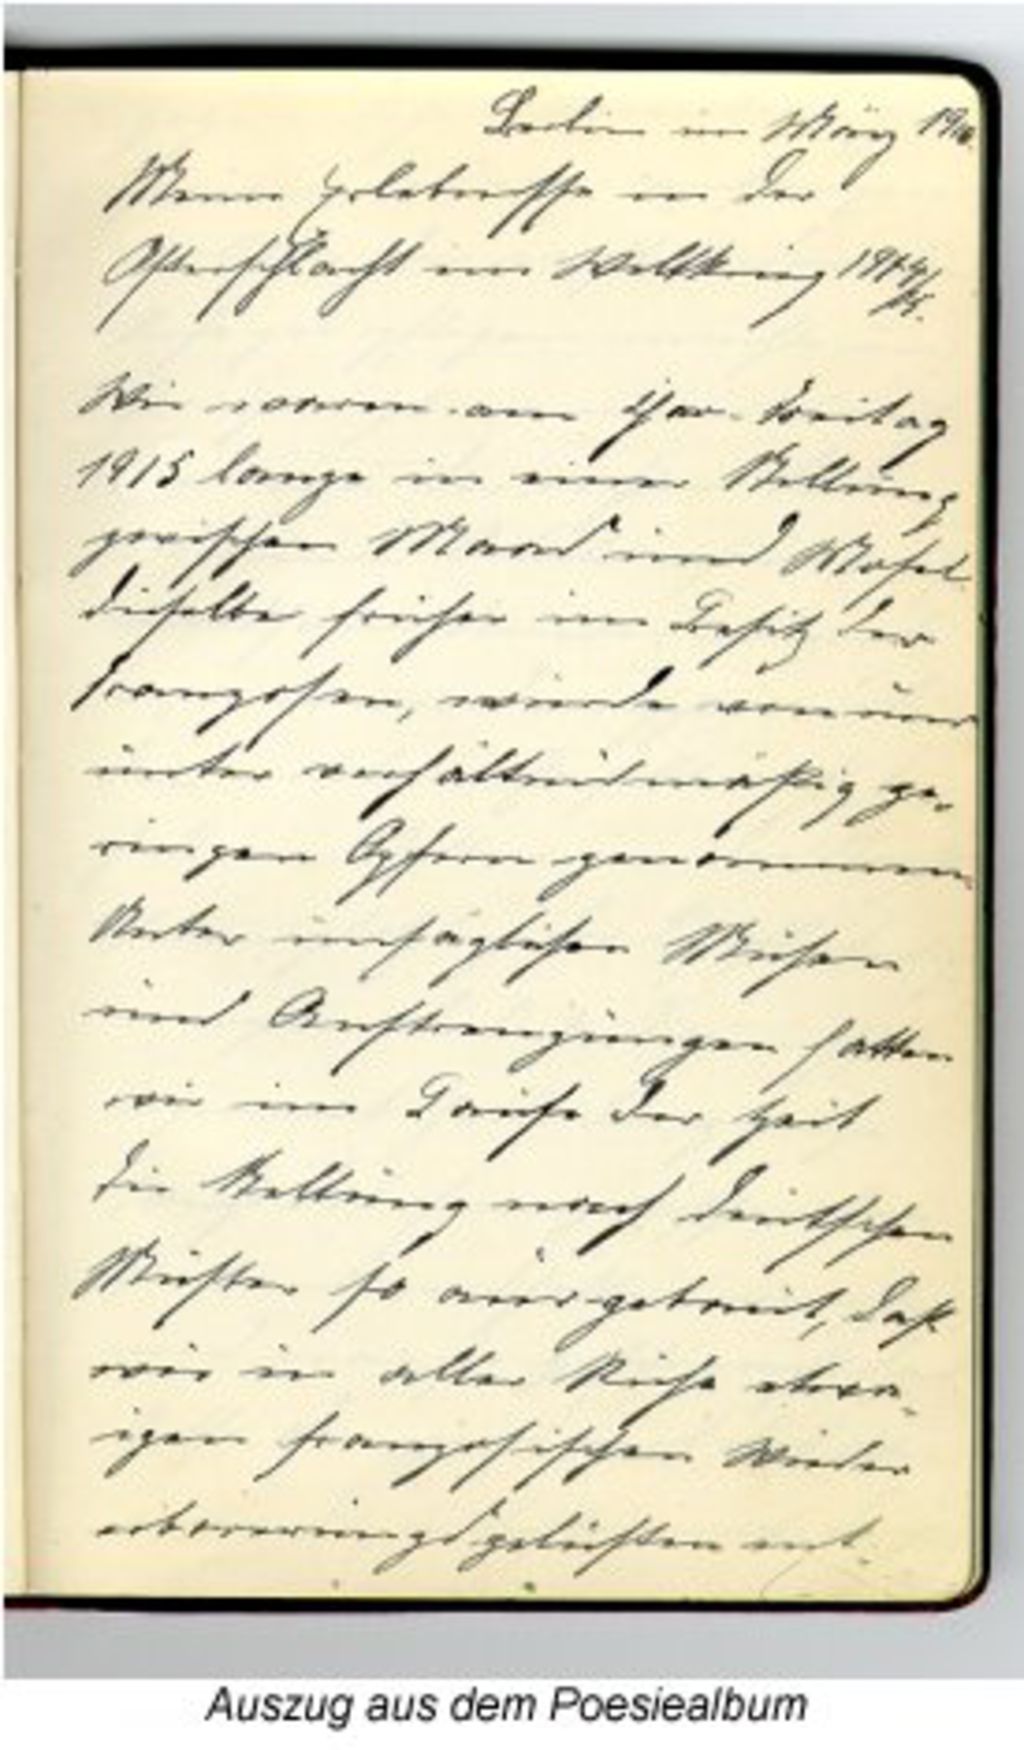 Berlin im März 1916.
Meine Erlebnisse in der
Osterschlacht im Weltkrieg 1914/
15.
Wir waren am Char-Freitag
1915 lange in einer Stellung
zwischen Maas und Mosel
dieselbe früher im Besitz der
Franzosen, wurde von uns
unter verhältnismäßig ge-
ringen Opfern genommen.
Unter unsäglichen Mühen
und Anstrengungen hatten
wir im Laufe der Zeit
die Stellung nach deutschen
Muster so ausgebaut, daß
wir in aller Ruhe etwa-
igen französischen Wieder
eroberungsgelüsten ent-
Auszug aus dem Poesiealbum